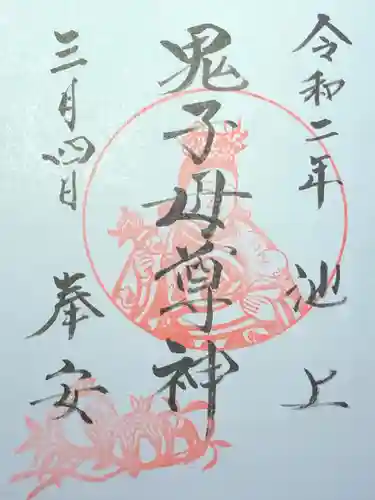 令和二年
池上
鬼子母尊神
三月四日
奉安